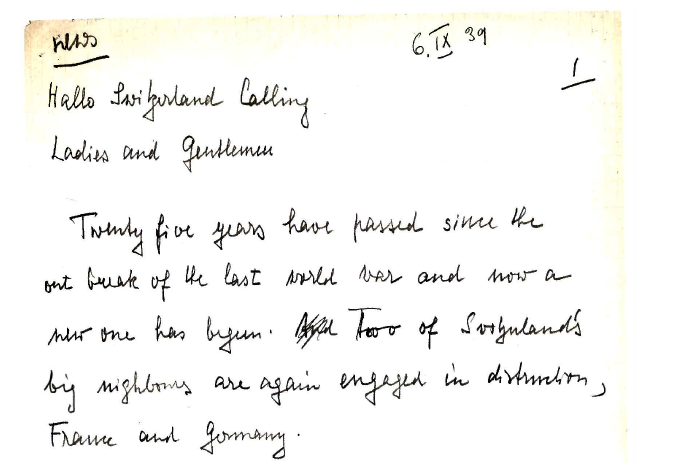 news
6. IX 39
1
Hallo Switzerland Calling
Ladies and Gentlemen
Twenty five years have passed since the
out break of the last world war and now a
new one has begun. And Two of Switzerland's
big nighbours are again engaged in distruction,
France and Germany.